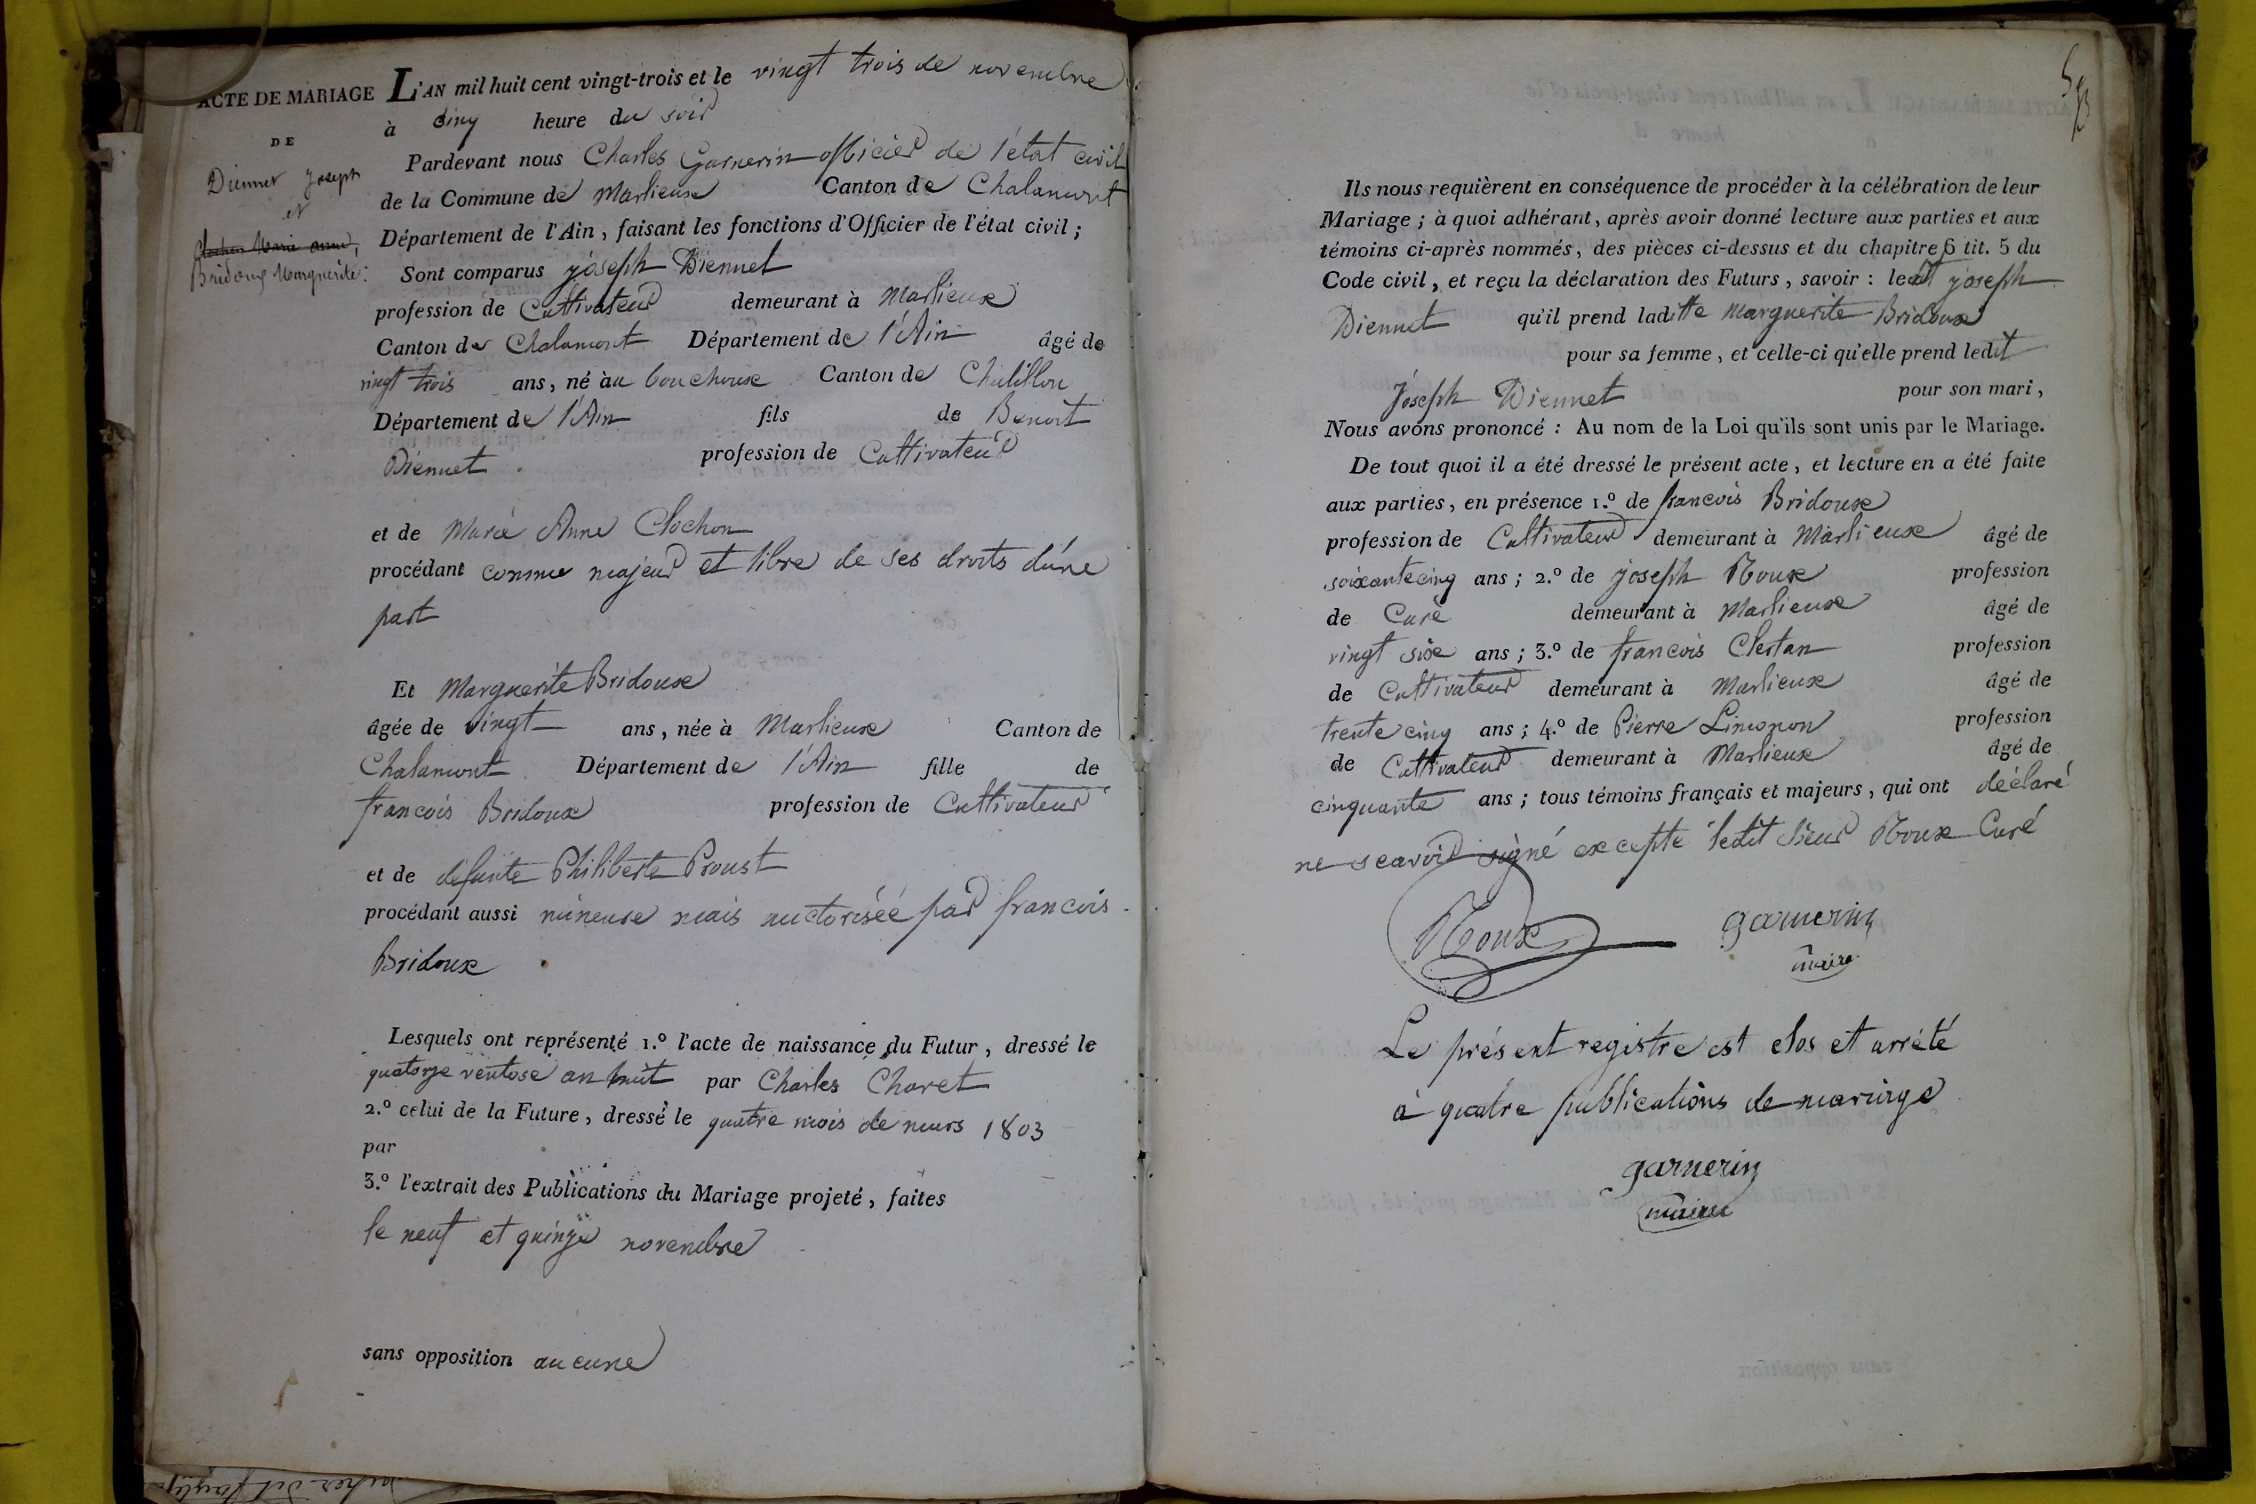 ACTE DE MARIAGE
DE
Diennet Joseph
et
Clochon Marie anne,
Bridoux Marguerite:
L'AN mil huit cent vingt-trois et le vingt trois de novembre
à cinq heure du soir
Pardevant nous Charles Garnerin officier de l'état civil
de la Commune de Marlieux Canton de Chalamont
Département de l'Ain, faisant les fonctions d'Officier de l'état civil;
Sont comparus joseph Diennet
profession de Cultivateur demeurant à Marlieux
Canton de Chalamont Département de l'Ain âgé de
vingt trois ans, né àu bouchoux Canton de Chatillon
Département de l'Ain fils de Benoit
Diennet profession de Cultivateur
et de Marie Anne Clochon
procédant comme majeur et libre de ses droits d'une
part
Et Marguerite Bridoux
âgée de vingt ans, née à Marlieux Canton de
Chalamont Département de l'Ain fille de
francois Bridoux profession de Cultivateur
et de defunte Philiberte Proust
procédant aussi mineure mais auctorisée par francois
Bridoux
Lesquels ont représenté 1.º l'acte de naissance du Futur, dressé le
quatorze ventose an huit par Charles Charet
2.º celui de la Future, dressé le quatre mois de mars 1803
par
3.º l'extrait des Publications du Mariage projeté, faites
le neuf et quinze novembre
sans opposition aucune
Ils nous requièrent en conséquence de procéder à la célébration de leur
Mariage; à quoi adhérant, après avoir donné lecture aux parties et aux
témoins ci-après nommés, des pièces ci-dessus et du chapitre 6 tit. 5 du
Code civil, et reçu la déclaration des Futurs, savoir: ledit joseph
Diennet qu'il prend laditte Marguerite Bridoux
pour sa femme, et celle-ci qu'elle prend ledit
Joseph Diennet pour son mari,
Nous avons prononcé: Au nom de la Loi qu'ils sont unis par le Mariage.
De tout quoi il a été dressé le présent acte, et lecture en a été faite
aux parties, en présence 1.º de francois Bridoux
profession de Cultivateur demeurant à Marlieux âgé de
soixante cinq ans; 2.º de joseph Roux profession
de Curé demeurant à Marlieux âgé de
vingt six ans; 3.º de francois Clertan profession
de Cultivateur demeurant à Marlieux âgé de
trente cinq ans; 4.º de Pierre Limonon profession
de Cultivateur demeurant à Marlieux âgé de
cinquante ans; tous témoins français et majeurs, qui ont déclaré
ne scavoir signé excepte ledit sieur Roux Curé
Roux garnerin
maire
Le présent registre est clos et arrété
à quatre publications de mariage
garnerin
maire